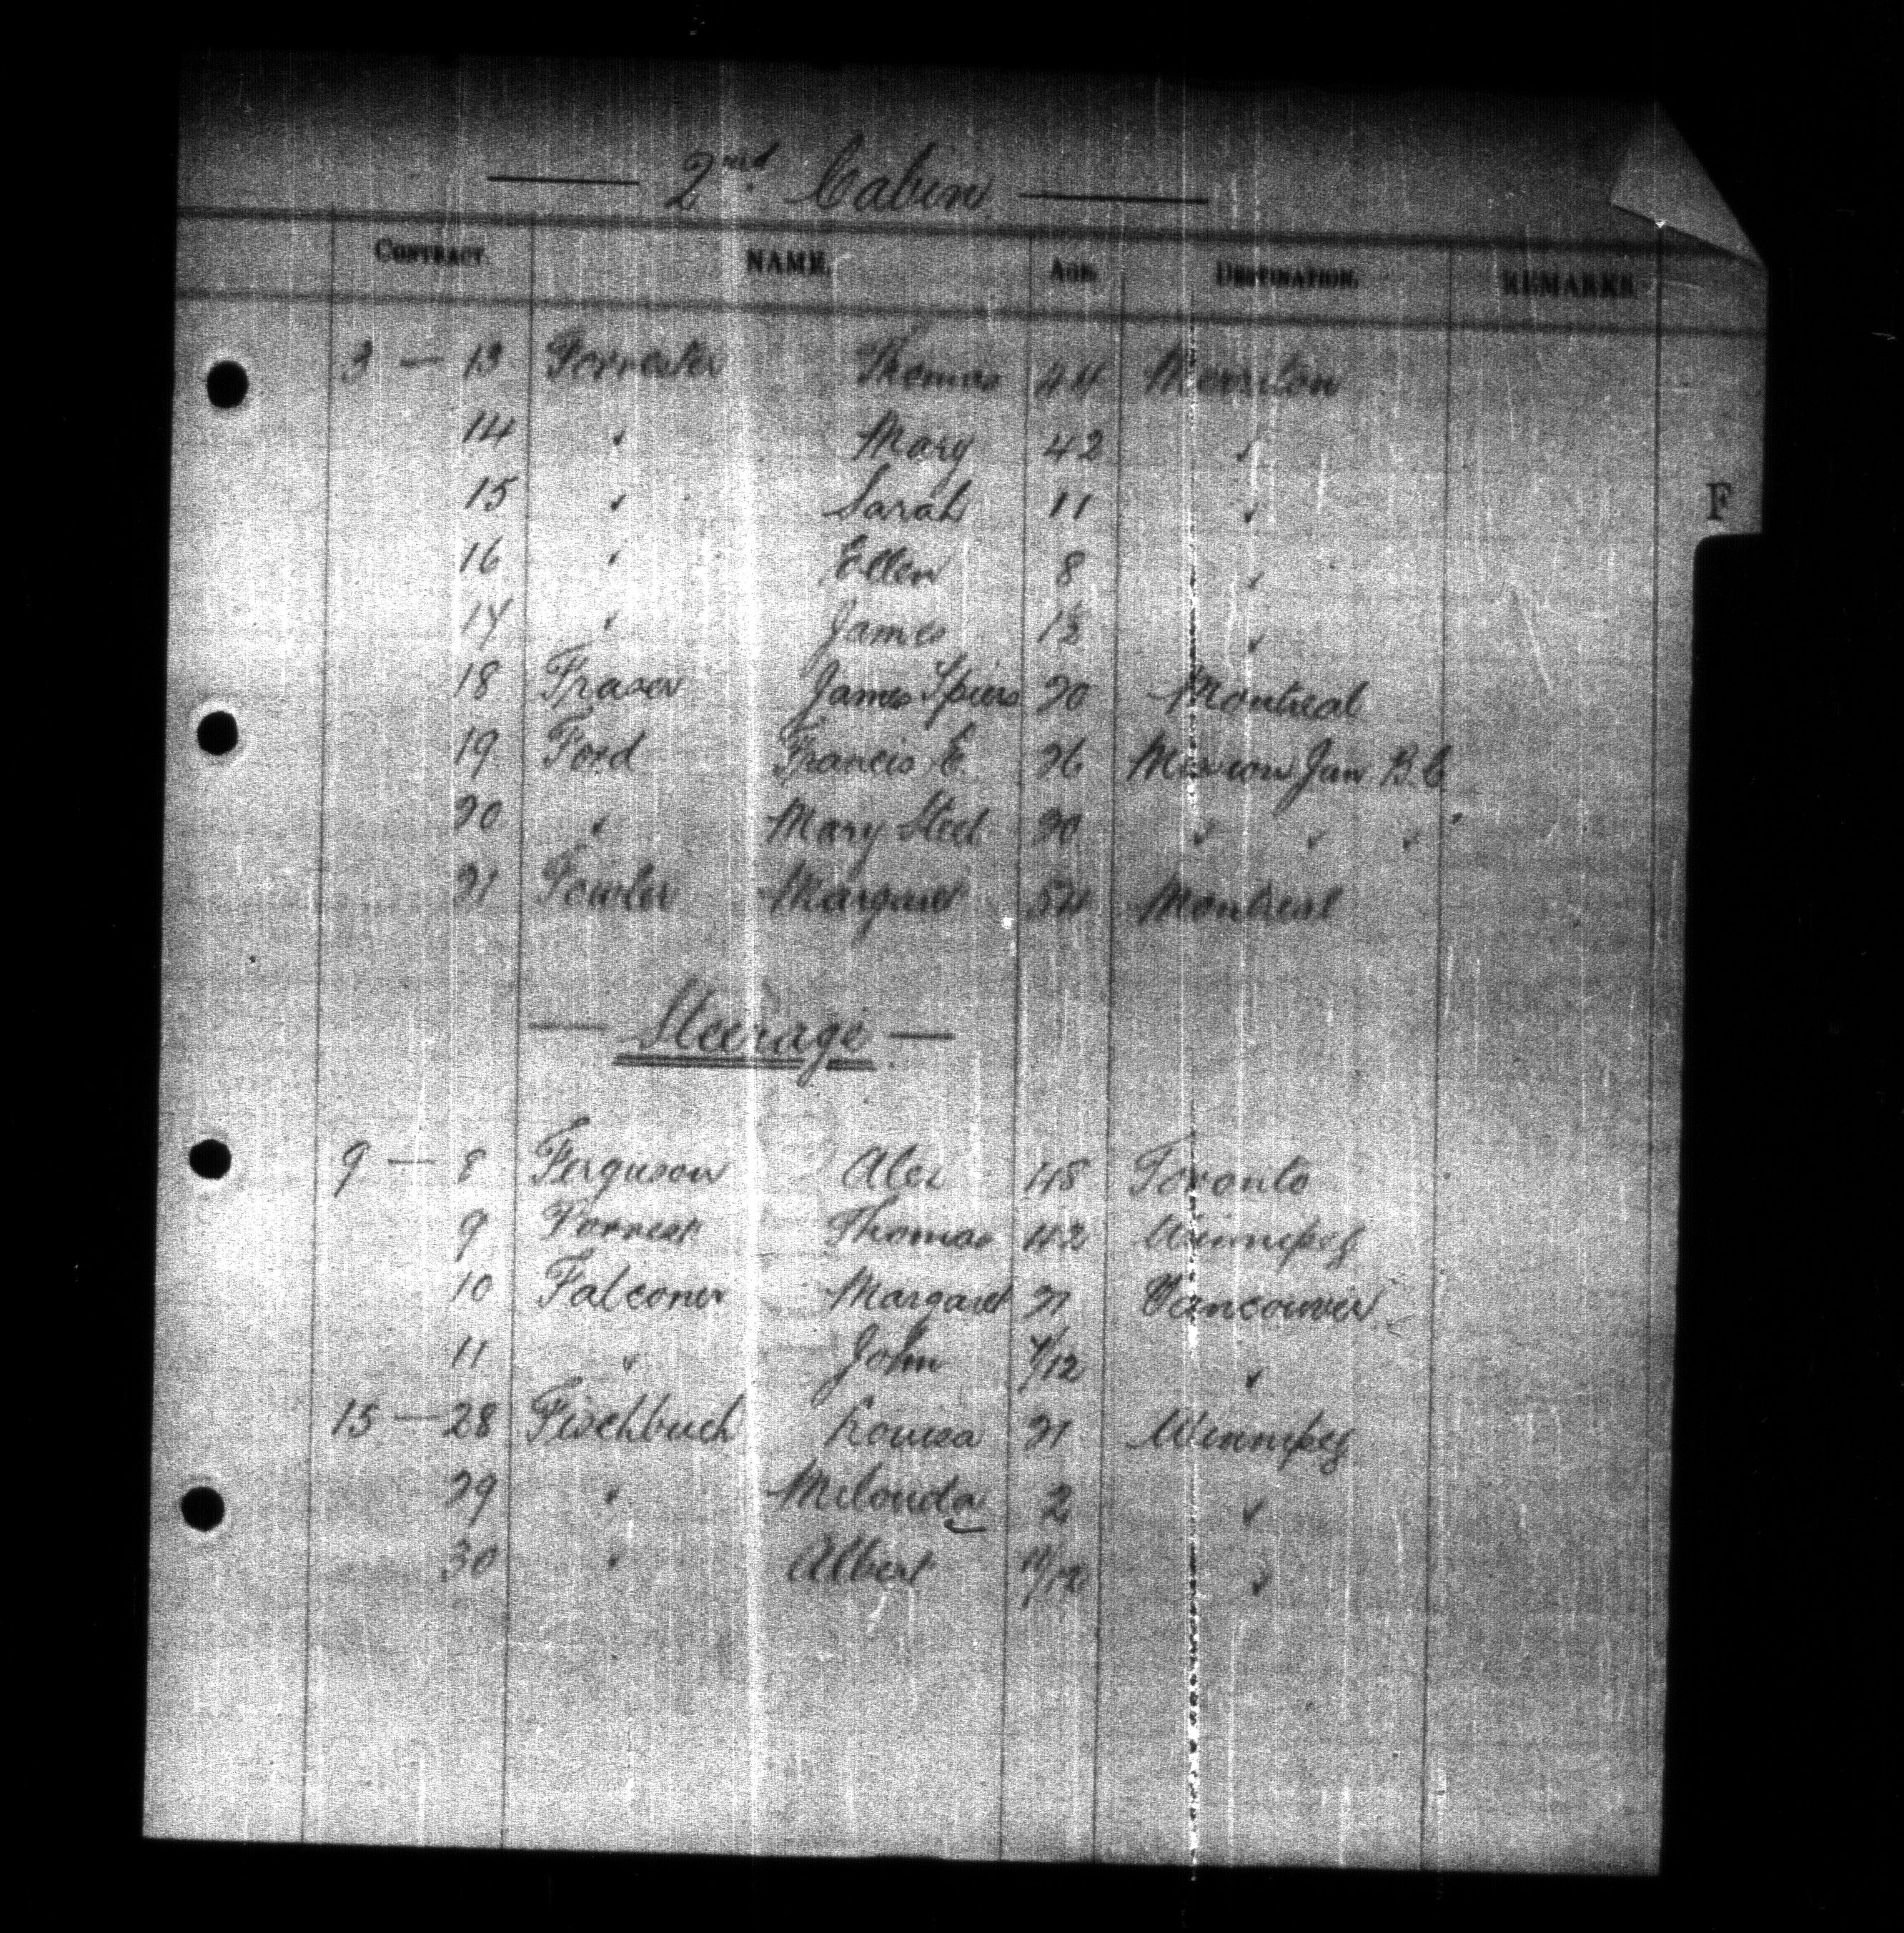 2nd Cabin
CONTRACT. NAME. AGE. DESTINATION. REMARKS
3 — 13 Forrester Thomas 44 Merriton
14 " Mary 42 "
15 " Sarah 11 "
F
16 " Ellen 8 "
17 " James 1½ "
18 Fraser James Spiers 20 Montreal
19 Ford Francis E. 26 Mission Jun B.C.
20 " Mary Steel 20 " " "
21 Fowler Margaret 54 Montreal
— Steerage —
9 — 8 Ferguson Alex 48 Toronto
9 Forrest Thomas 42 Winnipeg
10 Falconer Margaret 21 Vancouver
11 " John /12 "
15 — 28 Fischbuch Louisa 21 Winnipeg
29 " Melouda 2 "
30 " Albert /12 "